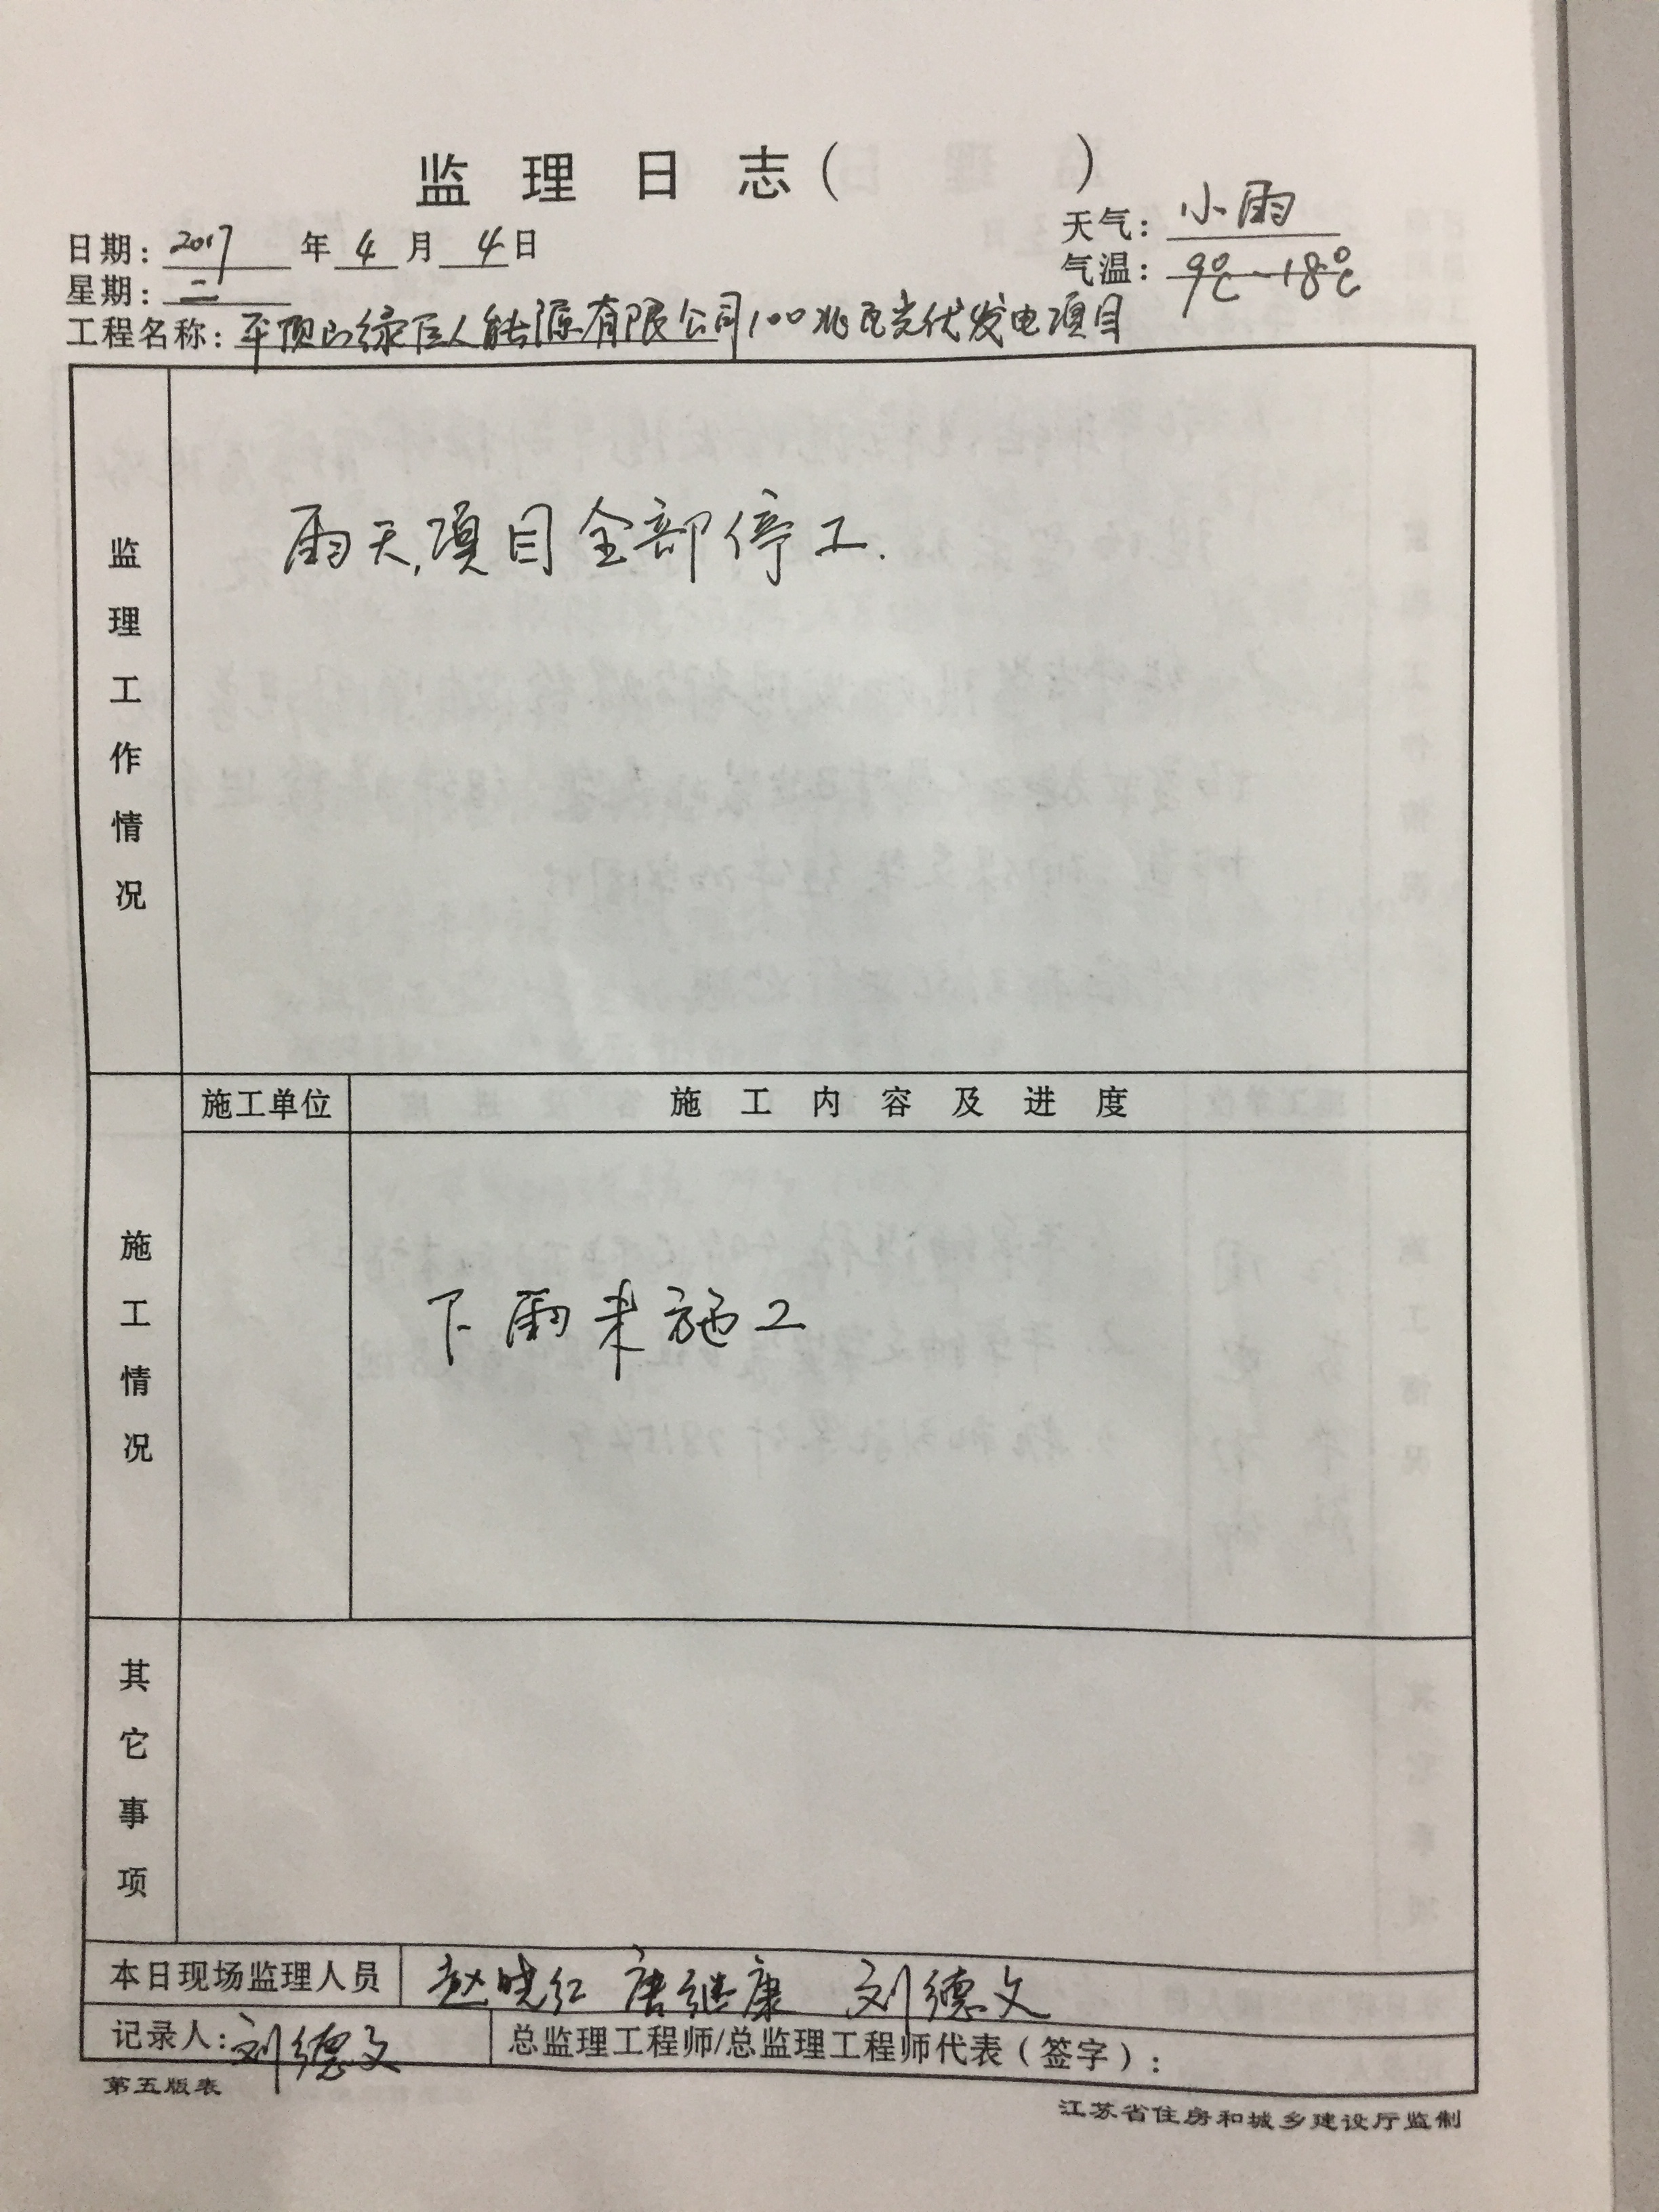 监 理 日 志 (    )
日期: 2017 年 4 月 4 日 天气: 小雨
星期: 二 气温: 9℃-18℃
工程名称: 平顶山绿巨人能源有限公司100兆瓦光伏发电项目
监理工作情况
雨天,项目全部停工.
施工单位 施 工 内 容 及 进 度
施工情况
下雨未施工
其它事项
本日现场监理人员 赵晓红 唐继康 刘德文
记录人: 刘德文 总监理工程师/总监理工程师代表(签字):
第五版表
江苏省住房和城乡建设厅监制